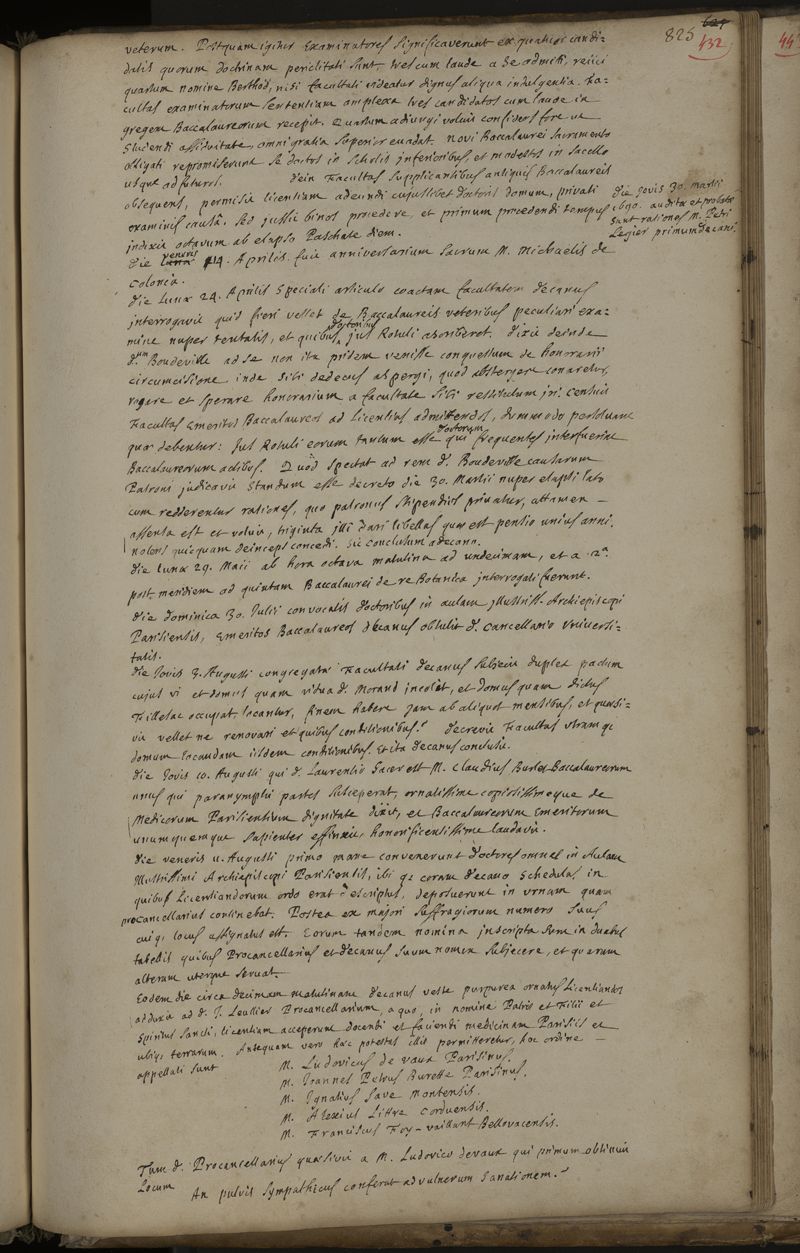 825 624
432
44
veterum. Postquam igitur Examinatores significaverunt ex quatuor candi=
datis quorum doctrinam periclitati sunt, tres cum laude a se admitti, reiici
quartum nomine Berthod, nisi facultati videatur dignus aliqua indulgentia. Fa=
cultas examinatorum sententiam amplexa tres candidatos cum laude in
gregem Baccalaureorum recepit. Quartum adiungi voluit confidens fore ut
studendi assiduitate, omni gratia superior evadat. novi Baccalaurei sacramento
obligati repromiserunt se doctos in scholis inferioribus et modestos in sacello
usque ad futuros. dein Facultas supplicantibus antiquis Baccalaureis
obsequens, permisit licentiam adeundi cujuslibet doctoris domum, privati
examinis causâ. sed jussit binos procedere, et primum procedendi tempus
indixit octavum ab elapso Paschate diem.
die Jovis 30. martii
1690. auditæ et probatæ
sunt rationes M. Petri
Legier primum decani.
die veneris 14. Aprilis. fuit anniversarium sacrum M. Michaelis de
Colonia.
die Lunæ 24. Aprilis speciali articulo coactam facultatem decanus
interrogavit quid fieri vellet de Baccalaureis veteribus peculiari exa=
mine nuper tentatis, et quibus doctoribus jus Rotuli ascriberet. dixit deinde
d.um Boudeville ad se non ita pridem venisse conquestum de honorarii
circumcisione inde sibi dedecus aspergi, quod abstergere conaretur,
rogare et sperare honorarium a facultate sibi restitutum iri. Censuit
Facultas emeritos Baccalaureos ad Licentias admittendos, dummodo persolvant
quæ debentur: Jus Rotuli eorum tantum esse doctorum qui frequentes interfuerint
Baccalaureorum actibus. Quòd spectat ad rem d. Boudeville causarum
Patroni judicavit standum esse decreto die 30. Martii nuper elapsi lato
cum redderentur rationes, quo patronus stipendiis privatur, attamen —
assensa est et voluit, triginta illi dari libellas quæ est pensio unius anni.
nolens quicquam deinceps concedi. sic conclusum a decano.
die Lunæ 29. Maii ab hora octava matutina ad undecimam, et a 2.a
post meridiem ad quintam Baccalaurei de re Botanica interrogati fuerunt.
die dominica 30. Julii convocatis doctoribus in aulam illustriss. Archiepiscopi
Parisiensis, emeritos Baccalaureos decanus obtulit d. Cancellario Universi=
tatis.
die Jovis 3. Augusti congregatæ Facultati decanus subjecit duplex pactum
cujus vi et domus quam vidua d. Morand incolit, et domus quam dictus
Filletac occupat locantur, finem habere jam ab aliquot mensibus, et quæsi=
vit vellet ne renovari et quibus conditionibus. decrevit Facultas utramq;
domum locandam iisdem conditionibus. et ita decanus conclusit.
die Jovis 10. Augusti qui d. Laurentio sacer est M. Claudius Burlet Baccalaureorum
unus qui paranymphi partes susceperat, ornatissime copiosissimeque de
Medicorum Parisiensium dignitate dixit, et Baccalaureorum emeritorum
unumquemque sapienter effinxit, honorificentissime laudavit.
die veneris 11. Augusti primo mane convenerunt doctores omnes in Aulam
illustrissimi Archiepiscopi Parisiensis, ibi q; coram decano schedulas in
quibus Licentiandorum ordo erat descriptus, deposuerunt in urnam quam
procancellarius continebat. Postea ex majori suffragiorum numero suus
cuiq; locus assignatus est. Eorum tandem nomina inscripta sunt in duabus
tabellis quibus Procancellarius et decanus suum nomen subjecere, et quarum
alteram uterque servat.
Eodem die circa decimam matutinam decanus veste purpurea ornatus Licentiandos
adduxit ad d. J. Leullier Procancellarium, a quo, in nomine Patris et Filii et
spiritus sancti, licentiam acceperunt docendi et faciendi medicinam Parisiis et
ubiq; terrarum. Antequam vero hæc potestas illis permitteretur, hoc ordine —
appellati sunt
M. Ludovicus de vaux Parisinus.
M. Joannes Petrus Burette Parisinus.
M. Ignatius Save Montensis.
M. Alexius Littre Corduensis.
M. Franciscus Foy-vaillant Bellovacensis.
Tum d. Procancellarius quæsivit a M. Ludovico devaux qui primum obtinuit
Locum An pulvis sympathicus conferat ad vulnerum sanationem.